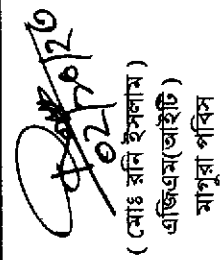 ০২/১০/২৩
( মোঃ রনি ইসলাম )
এজিএম(আইটি)
মাগুরা পবিস